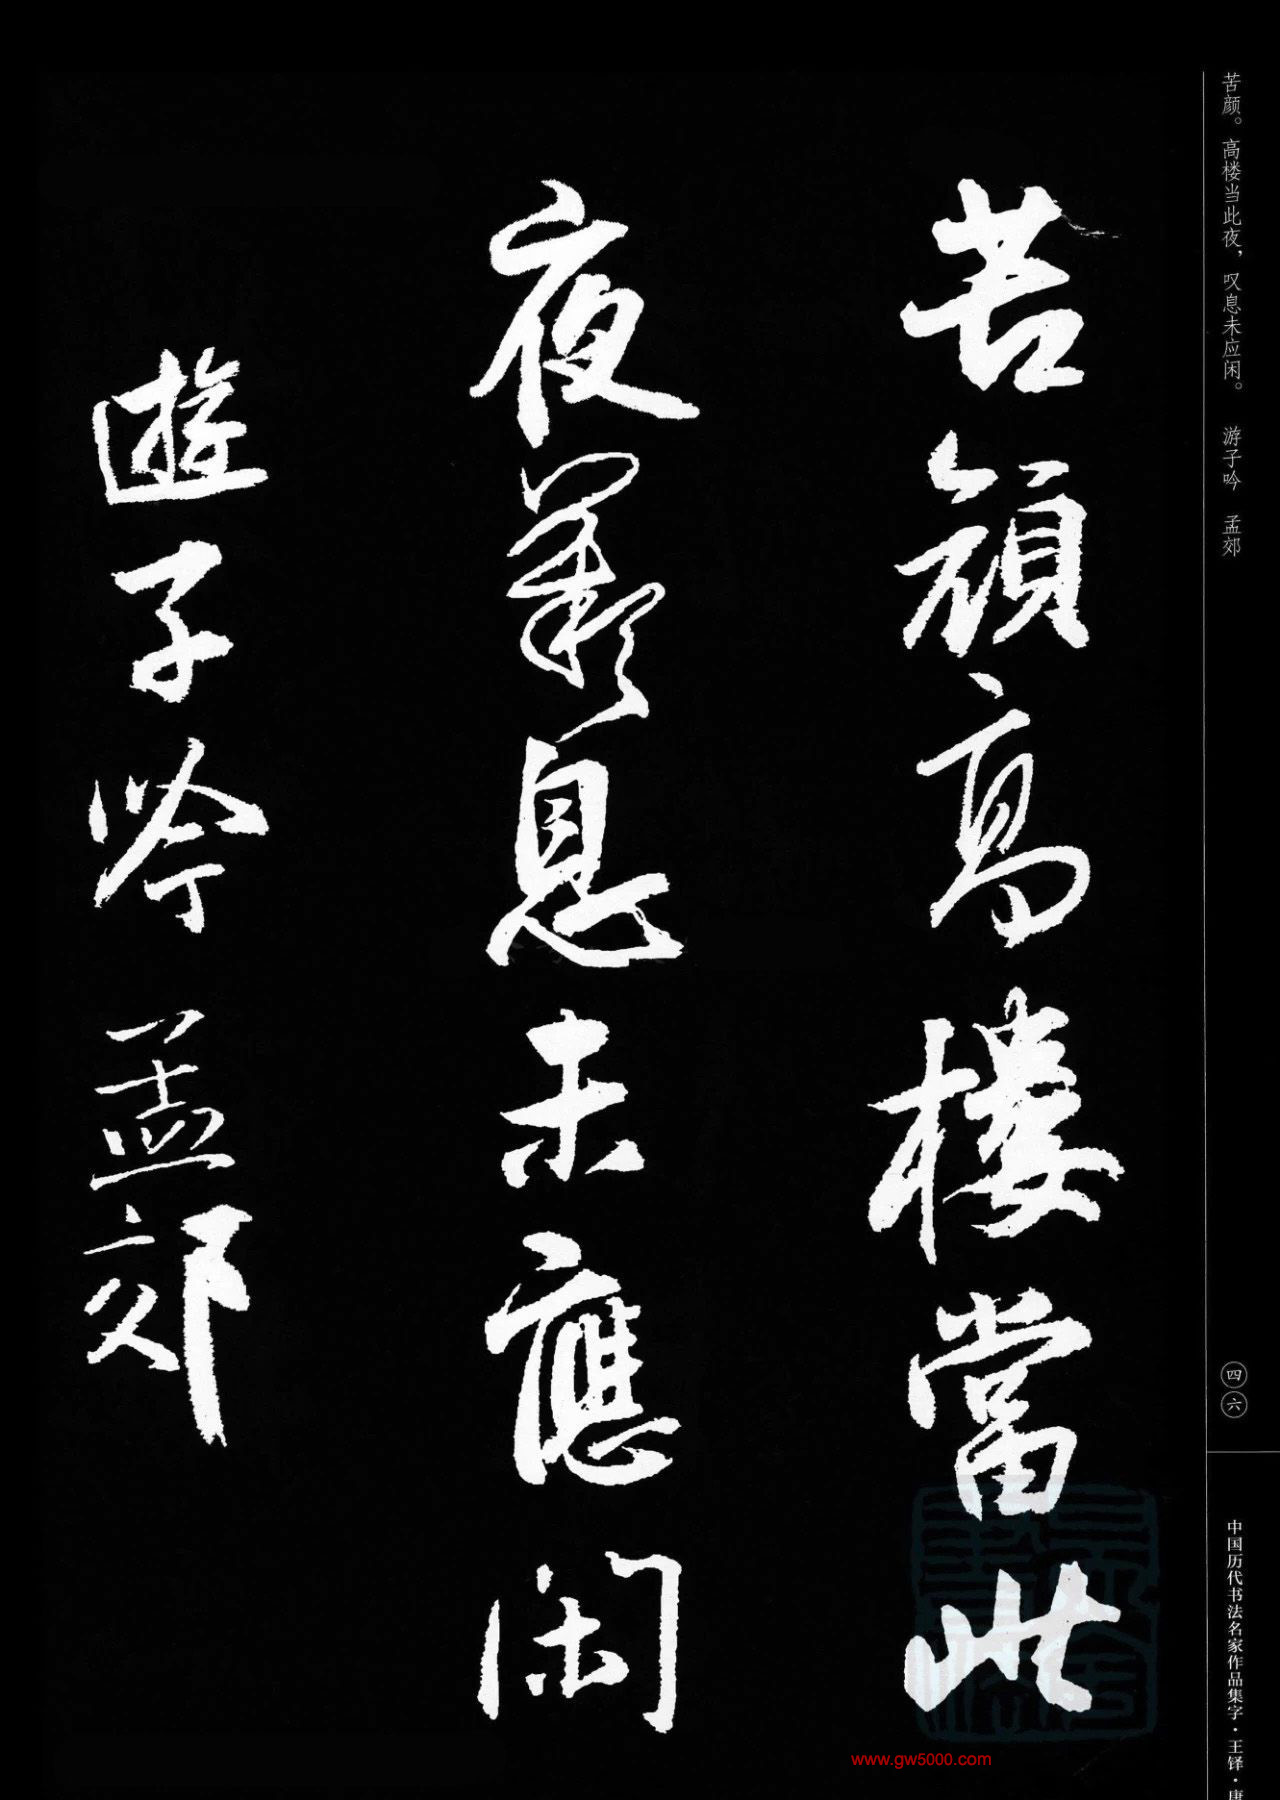 苦颜。高楼当此夜，叹息未应闲。 游子吟 孟郊
苦顏高樓當此
夜歎息未應閑
遊子吟 孟郊
四六
中国历代书法名家作品集字·王铎·唐
www.gw5000.com